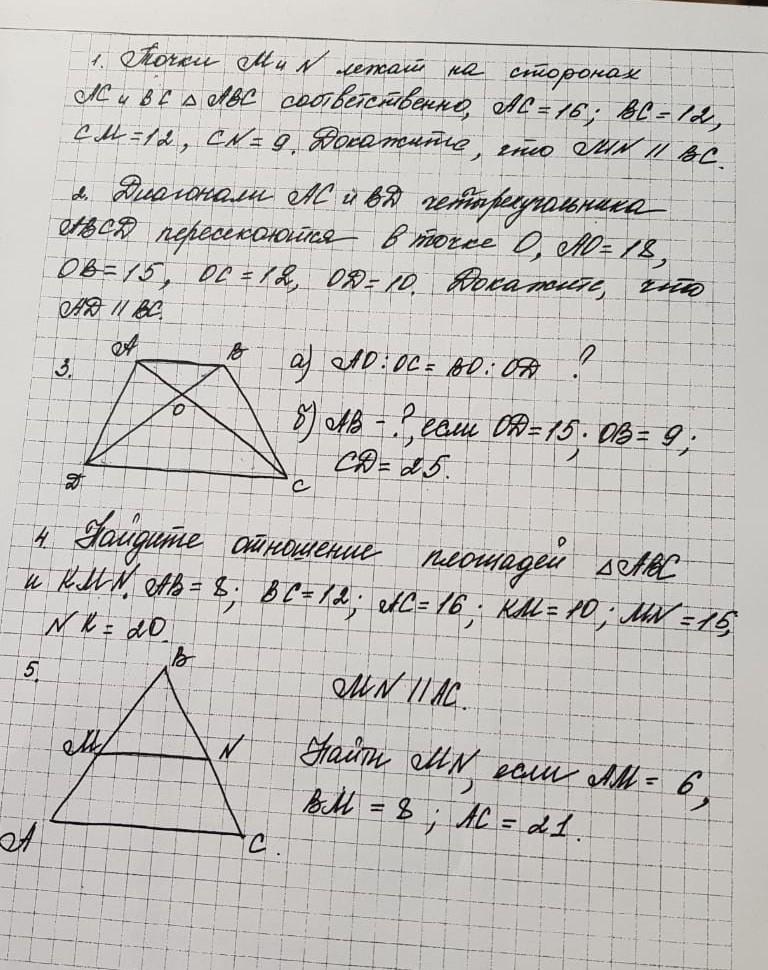 1. Точки M и N лежат на сторонах
AC и BC △ ABC соответственно, AC=16; BC=12,
CM=12, CN=9. Докажите, что MN || BC.
2. Диагонали AC и BD четырехугольника
ABCD пересекаются в точке O, AO=18,
OB=15, OC=12, OD=10. Докажите, что
AD || BC.
3.
A B
O
D C
а) AO:OC = BO:OD ?
б) AB - ?, если OD=15; OB=9;
CD=25.
4. Найдите отношение площадей △ABC
и KMN. AB=8; BC=12; AC=16; KM=10; MN=15,
NK=20.
5.
B
M N
A C.
MN || AC.
Найти MN, если AM=6,
BM=8; AC=21.